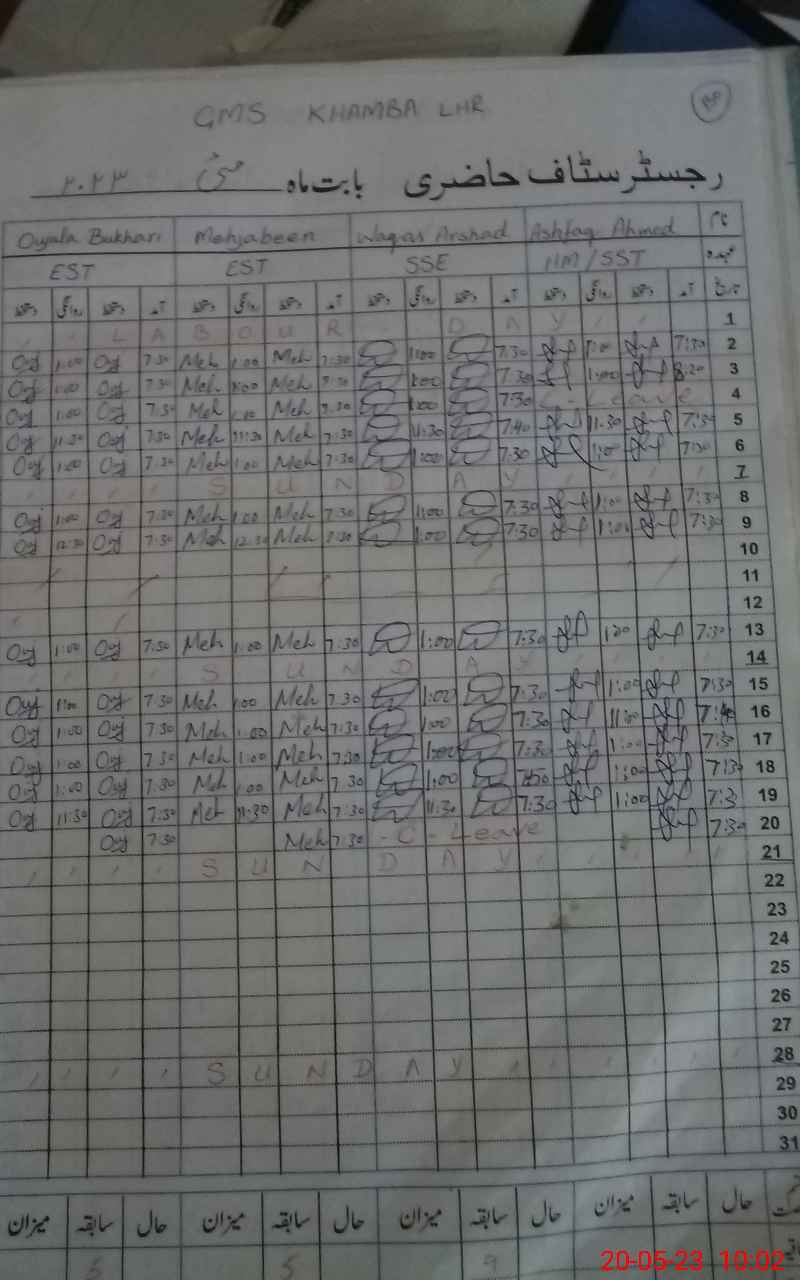 GMS KHAMBA LHR
رجسٹر سٹاف حاضری بابت ماہ مئی ۲۰۲۳
نام Ashfaq Ahmed Waqas Arshad Mehjabeen Oujala Bukhari
عہدہ HM/SST SSE EST EST
تاریخ آمد دستخط روانگی دستخط آمد دستخط روانگی دستخط آمد دستخط روانگی دستخط آمد دستخط روانگی دستخط
LABOUR DAY 1
Ouj 1:00 Ouj 7:30 Meh 1:00 Meh 7:30 1:00 7:30 1:00 7:30 2
Ouj 1:00 Ouj 7:30 Meh 1:00 Meh 7:30 1:00 7:30 1:00 8:20 3
Ouj 1:00 Ouj 7:30 Meh 1:00 Meh 7:30 1:00 7:30 C-Leave 4
Ouj 11:30 Ouj 7:30 Meh 11:30 Meh 7:30 11:30 7:40 11:30 7:30 5
Ouj 1:00 Ouj 7:30 Meh 1:00 Meh 7:30 1:00 7:30 1:00 7:30 6
SUNDAY 7
Ouj 1:00 Ouj 7:30 Meh 1:00 Meh 7:30 1:00 7:30 1:00 7:30 8
Ouj 12:30 Ouj 7:30 Meh 12:30 Meh 7:30 1:00 7:30 1:00 7:30 9
10
11
12
Ouj 1:00 Ouj 7:30 Meh 1:00 Meh 7:30 1:00 7:30 1:00 7:30 13
SUNDAY 14
Ouj 1:00 Ouj 7:30 Meh 1:00 Meh 7:30 1:00 7:30 1:00 7:30 15
Ouj 1:00 Ouj 7:30 Meh 1:00 Meh 7:30 1:00 7:30 11:00 7:40 16
Ouj 1:00 Ouj 7:30 Meh 1:00 Meh 7:30 1:00 7:30 1:00 7:30 17
Ouj 1:00 Ouj 7:30 Meh 1:00 Meh 7:30 1:00 1:00 7:30 18
Ouj 11:30 Ouj 7:30 Meh 11:30 Meh 7:30 11:30 7:30 1:00 7:30 19
Ouj 7:30 Meh 7:30 -C-Leave 7:30 20
SUNDAY 21
22
23
24
25
26
27
SUNDAY 28
29
30
31
حال سابقہ میزان حال سابقہ میزان حال سابقہ میزان حال سابقہ میزان
9 5 5
20-05-23 10:02